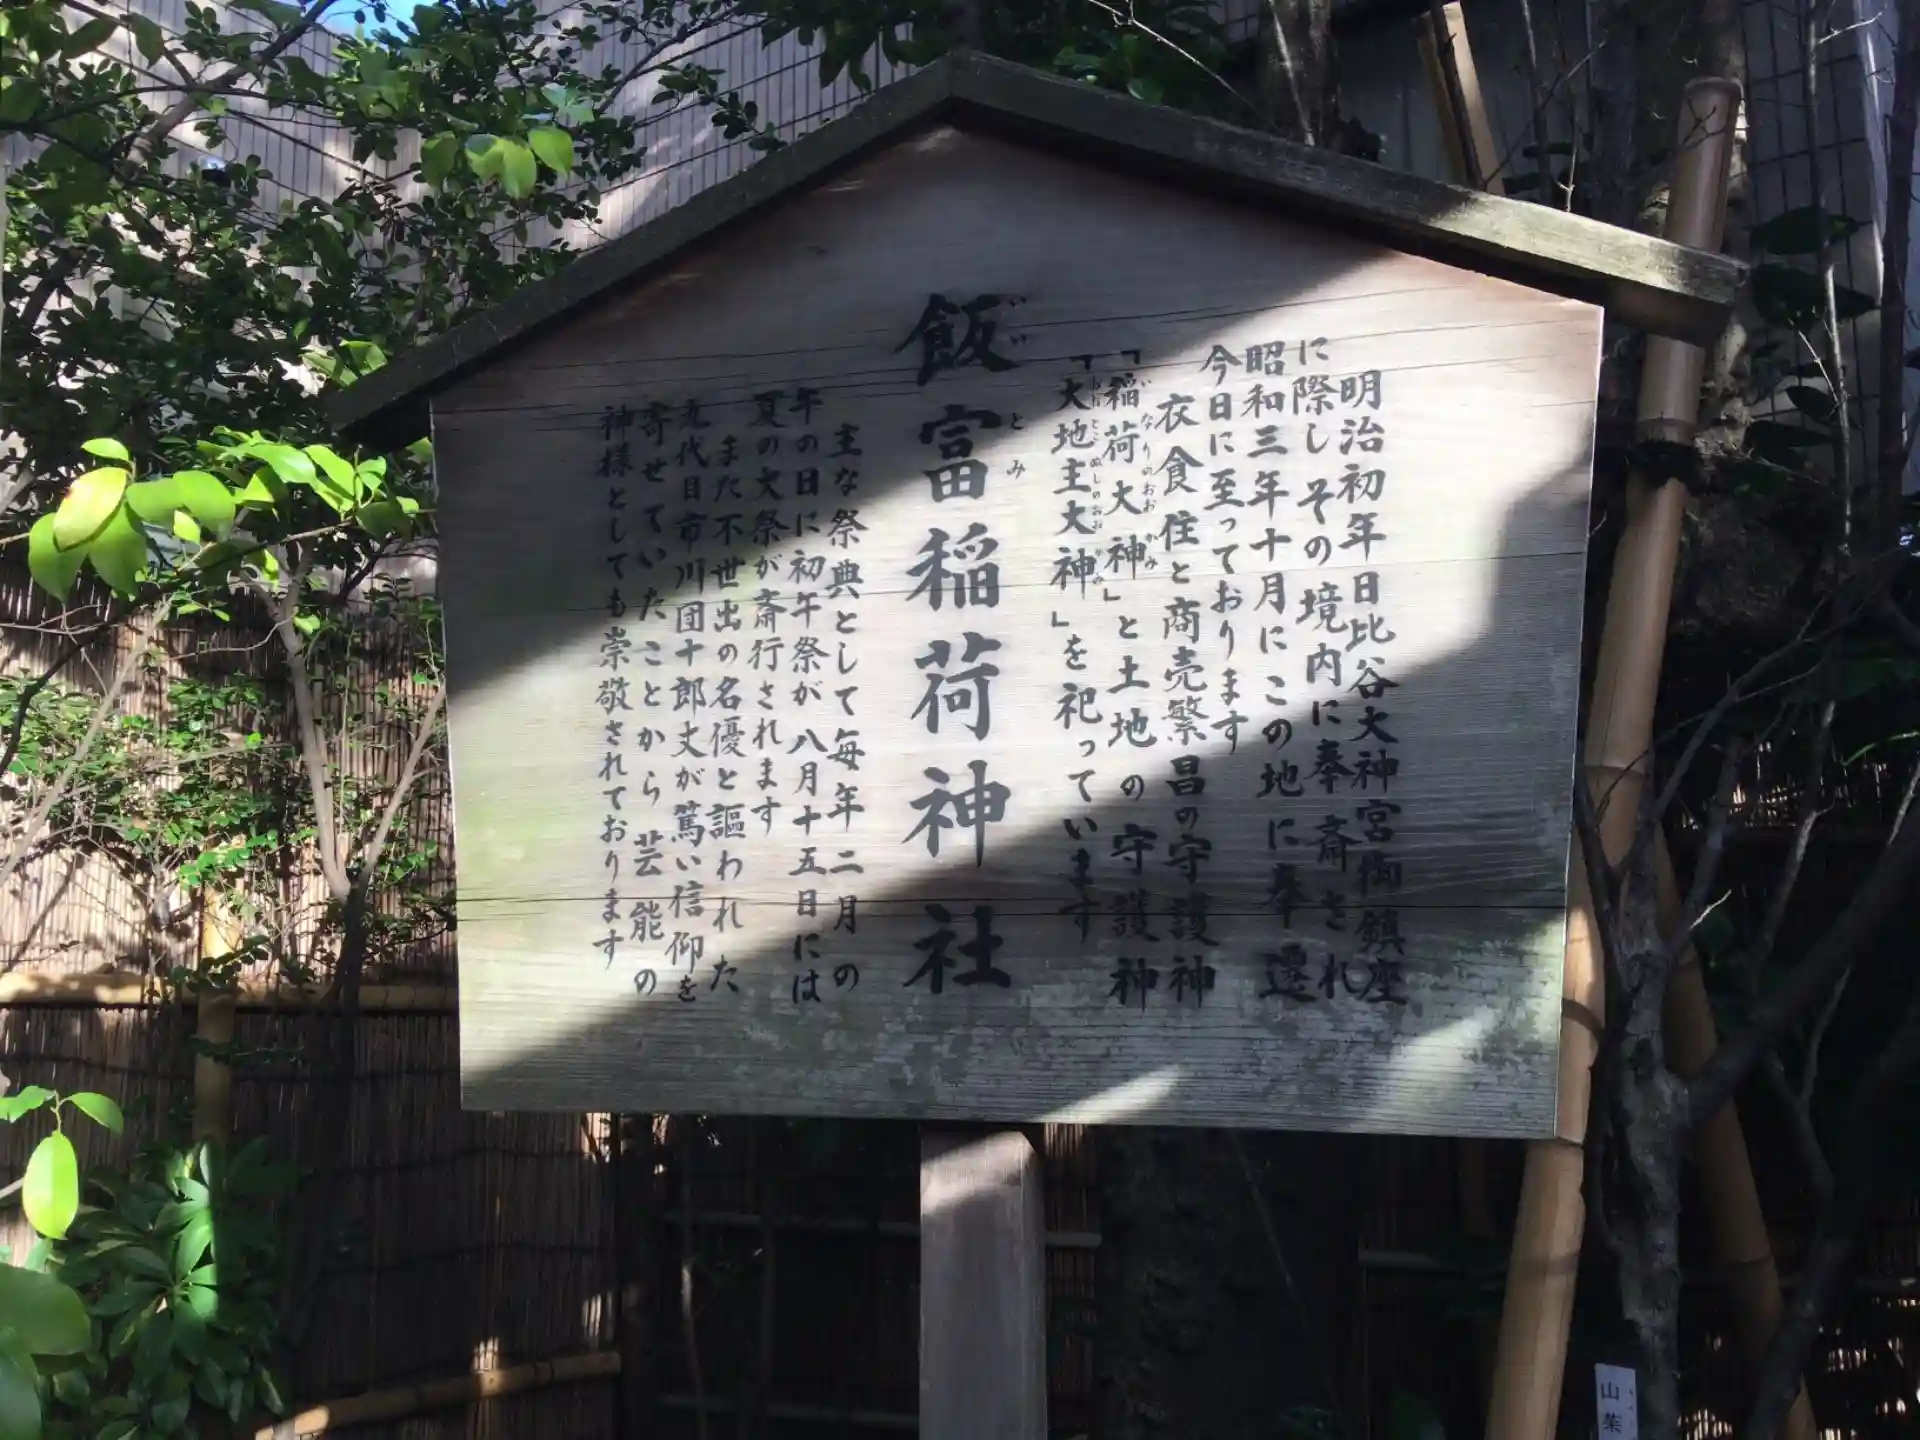 明治初年日比谷大神宮御鎮座
に際し その境内に奉斎され
昭和三年十月にこの地に奉遷
今日に至っております
衣食住と商売繁昌の守護神
「稲荷大神」と土地の守護神
「大地主大神」を祀っています
飯富稲荷神社
主な祭典として毎年二月の
午の日に初午祭が八月十五日には
夏の大祭が斎行されます
また不世出の名優と謳われた
九代目市川団十郎丈が篤い信仰を
寄せていたことから芸能の
神様としても崇敬されております